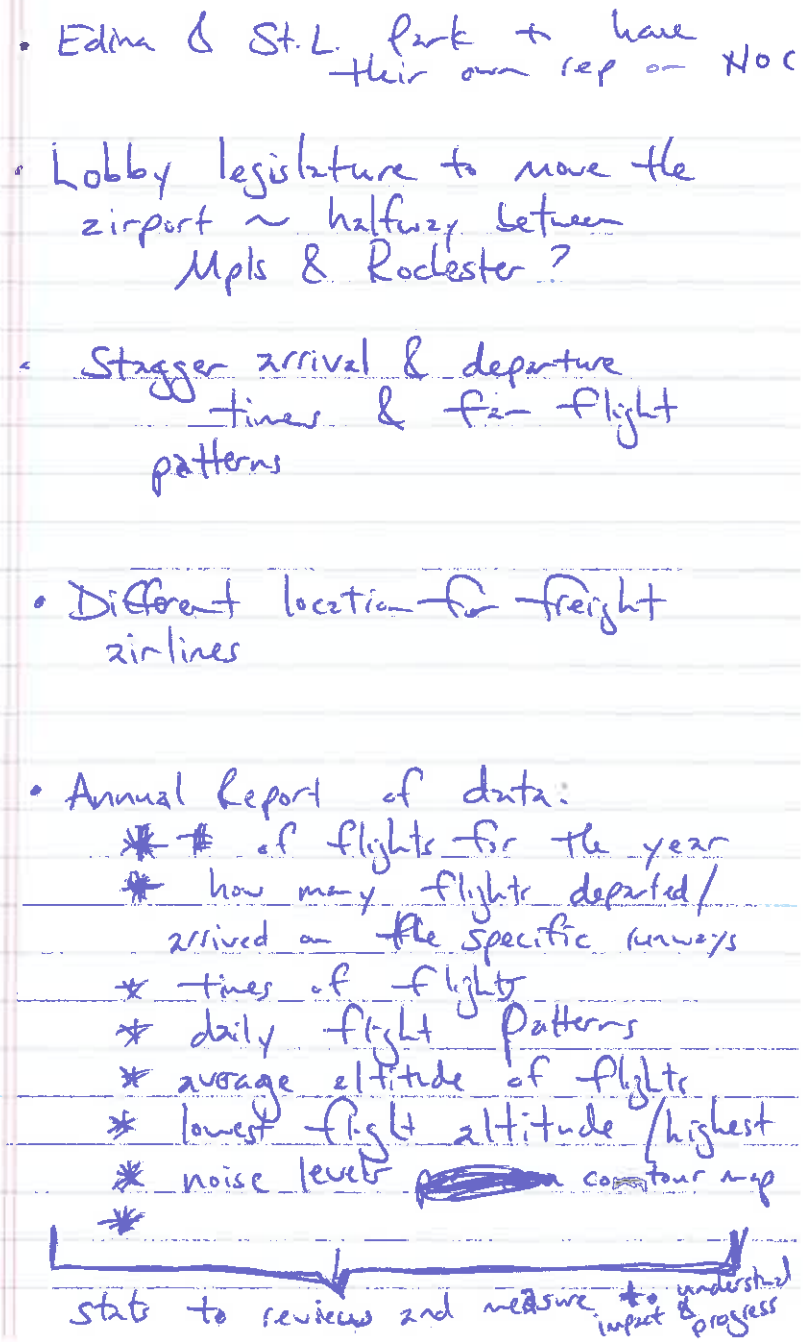 • Edina & St. L. Park to have
their own rep on NOC
• Lobby legislature to move the
airport ~ halfway between
Mpls & Rochester?
• Stagger arrival & departure
times & fan flight
patterns
• Different location for freight
airlines
• Annual Report of data:
* # of flights for the year
* how many flights departed/
arrived on the specific runways
* times of flights
* daily flight patterns
* average altitude of flights
* lowest flight altitude / highest
* noise levels contour map
*
stats to review and measure to understand
impact & progress